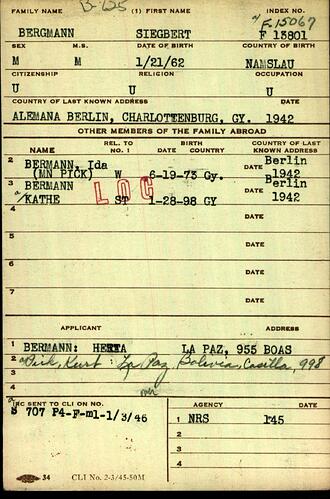 B-625
FAMILY NAME (1) FIRST NAME INDEX NO.
F-15067
BERGMANN SIEGBERT F 13801
SEX M.S. DATE OF BIRTH COUNTRY OF BIRTH
M M 1/21/62 NAMSLAU
CITIZENSHIP RELIGION OCCUPATION
U U U
COUNTRY OF LAST KNOWN ADDRESS DATE
ALEMANA BERLIN, CHARLOTTENBURG, GY. 1942
OTHER MEMBERS OF THE FAMILY ABROAD
REL. TO NO. 1 BIRTH DATE COUNTRY COUNTRY OF LAST KNOWN ADDRESS
2 BERMANN, Ida Berlin
(MN PICK) W 6-19-73 Gy. DATE 1942
3 BERMANN Berlin
KATHE ST 1-28-98 GY DATE 1942
LOC
4
DATE
5
DATE
6
DATE
7
DATE
APPLICANT ADDRESS
1 BERMANN: HERTA LA PAZ, 955 BOAS
2 Pick, Kurt: La Paz, Bolivia, Casilla, 998
3
4
INC SENT TO CLI ON NO. AGENCY DATE
S 707 P4-F-ml-1/3/46 1 NRS 145
2
3
4
34 CLI No. 2-3/45-50M